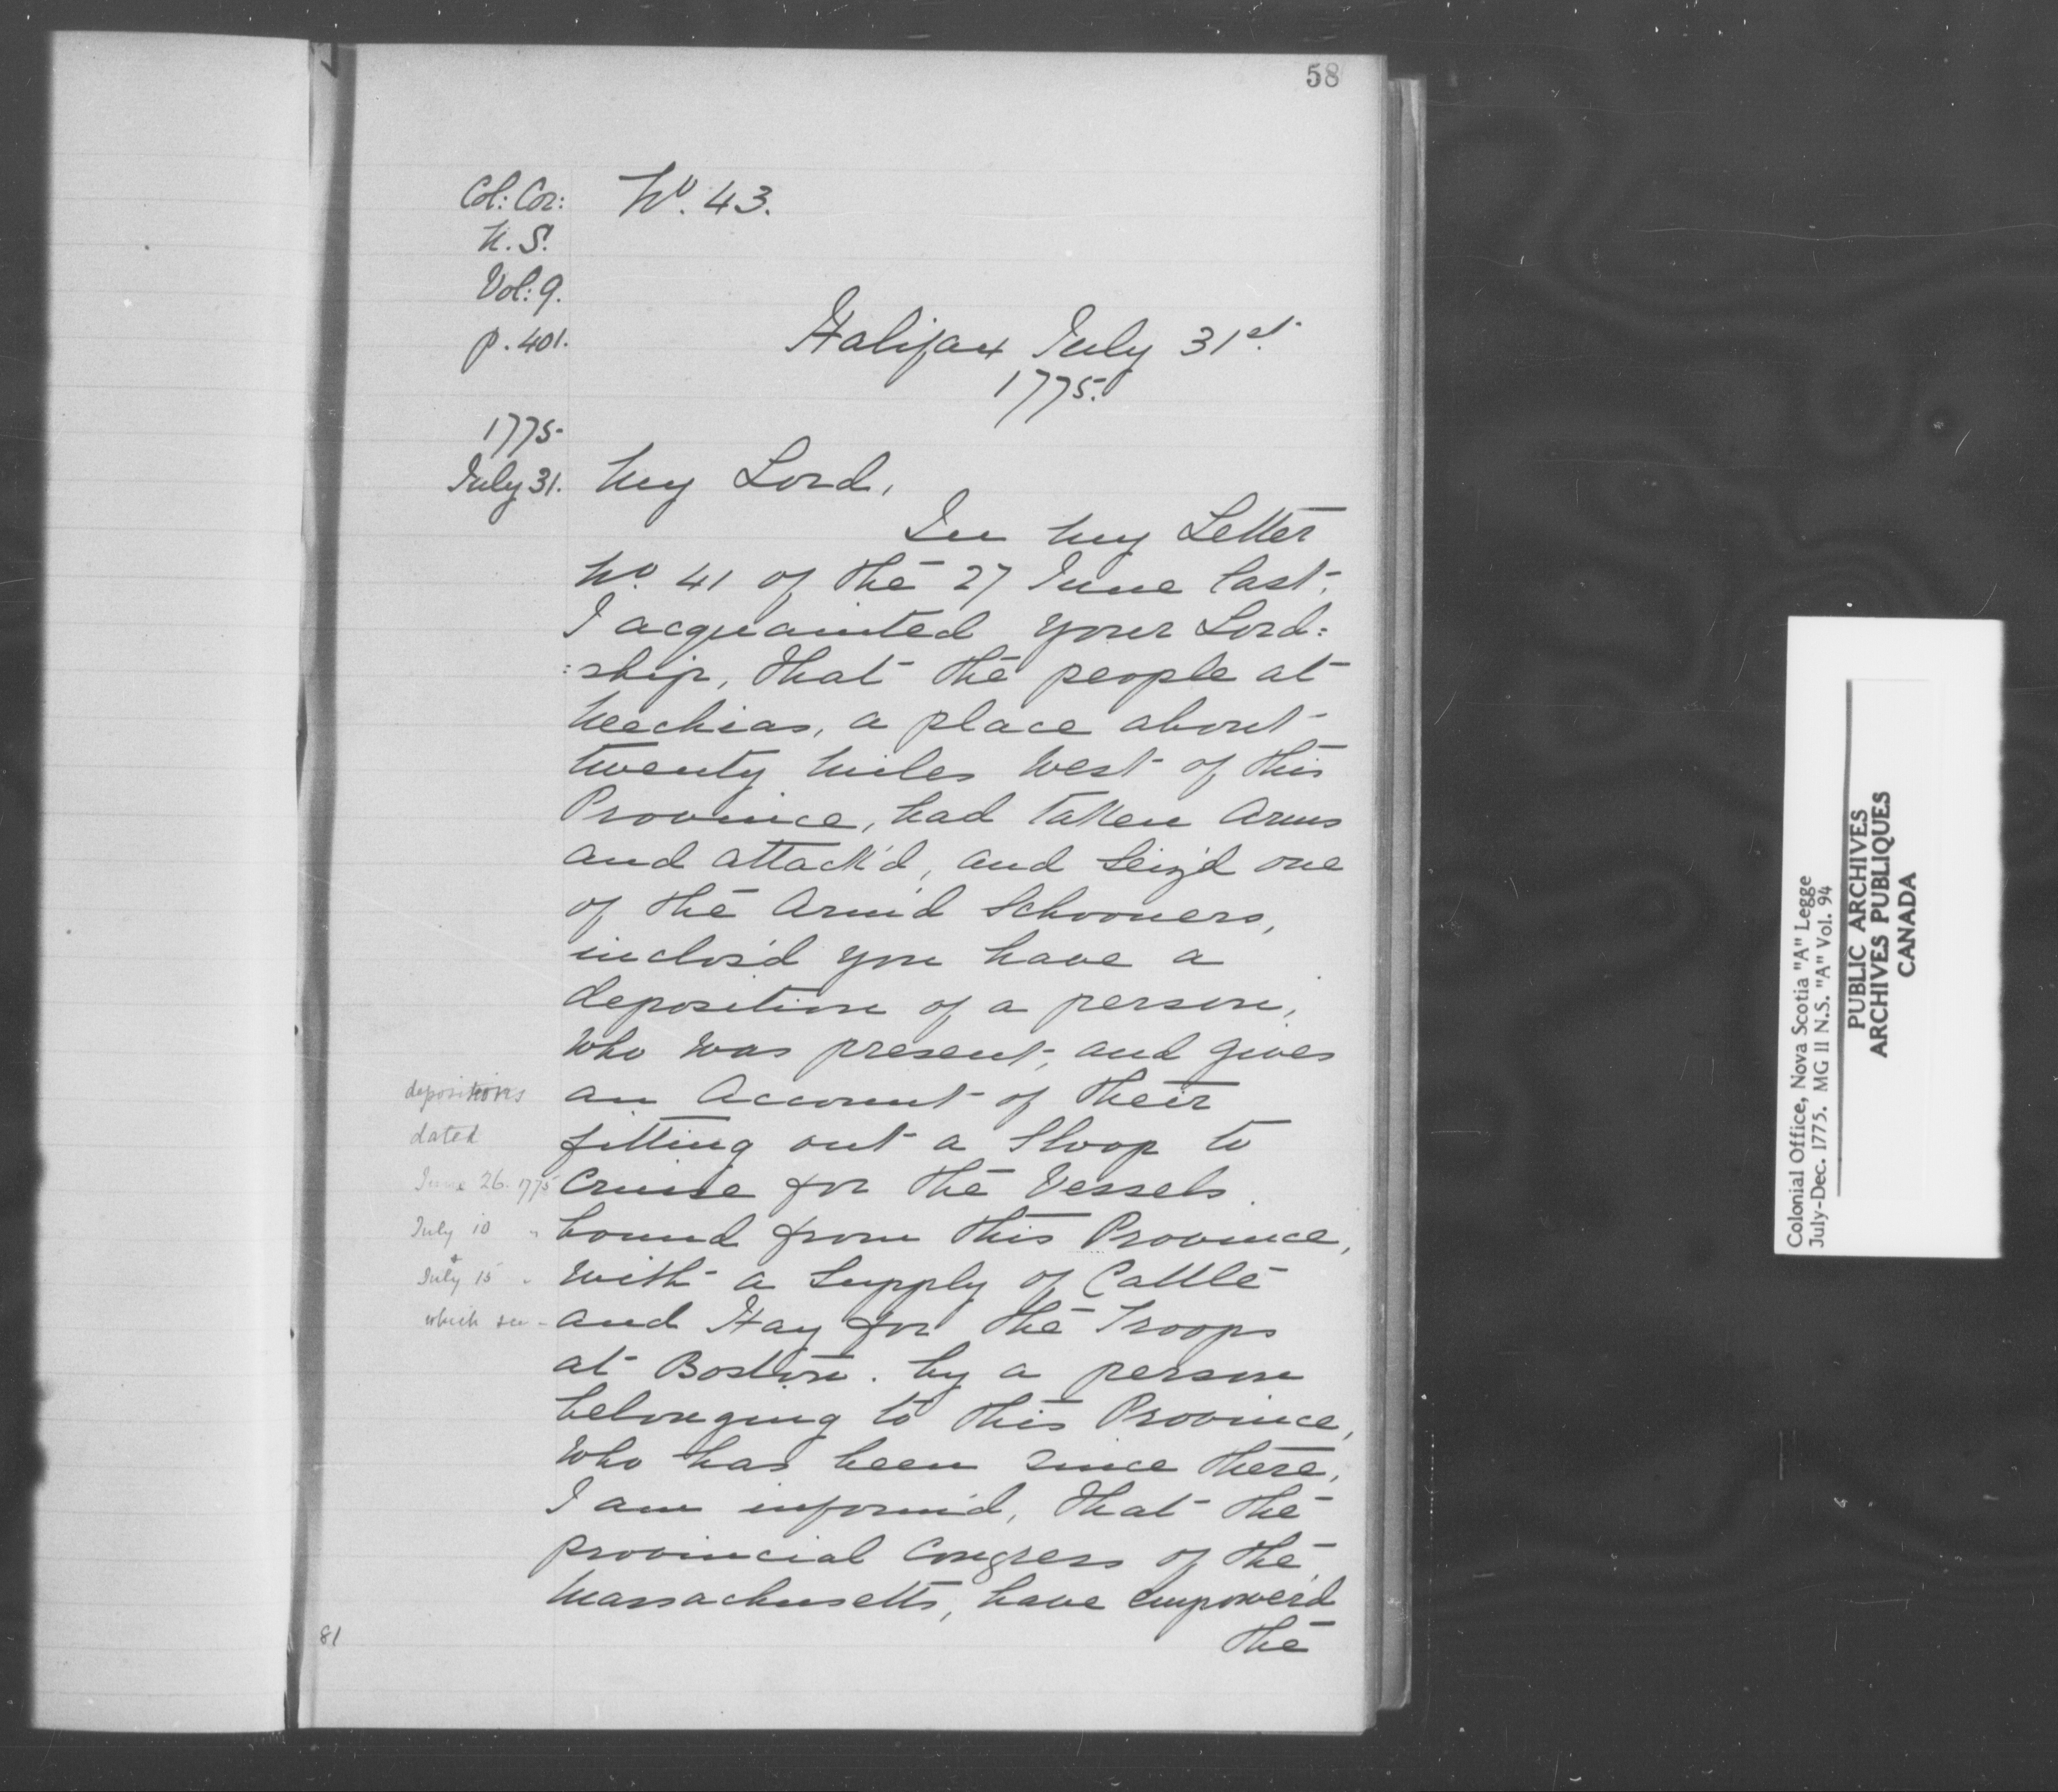 58
Col: Cor:
N. S.
Vol: 9.
p. 401.
No. 43.
Halifax July 31st.
1775.
1775
July 31.
My Lord,
In my Letter
No. 41 of the 27 June last,
I acquainted your Lord=
=ship, that the people at
Mechias, a place about
twenty miles West of this
Province, had taken Arms
and attack'd, and Seiz'd one
of the Arm'd Schooners,
inclos'd you have a
deposition of a person,
who was present, and gives
an Account of their
fitting out a Sloop to
Cruise for the Vessels
bound from this Province,
with a Supply of Cattle
and Hay for the Troops
at Boston. by a person
belonging to this Province,
who has been since there,
I am inform'd, that the
provincial Congress of the
Massachusetts, have empower'd
the
depositions
dated
June 26. 1775
July 10 "
+
July 15 "
which see -
81
Colonial Office, Nova Scotia "A" Legge
July-Dec. 1775. MG 11 N.S. "A" Vol. 94
PUBLIC ARCHIVES
ARCHIVES PUBLIQUES
CANADA